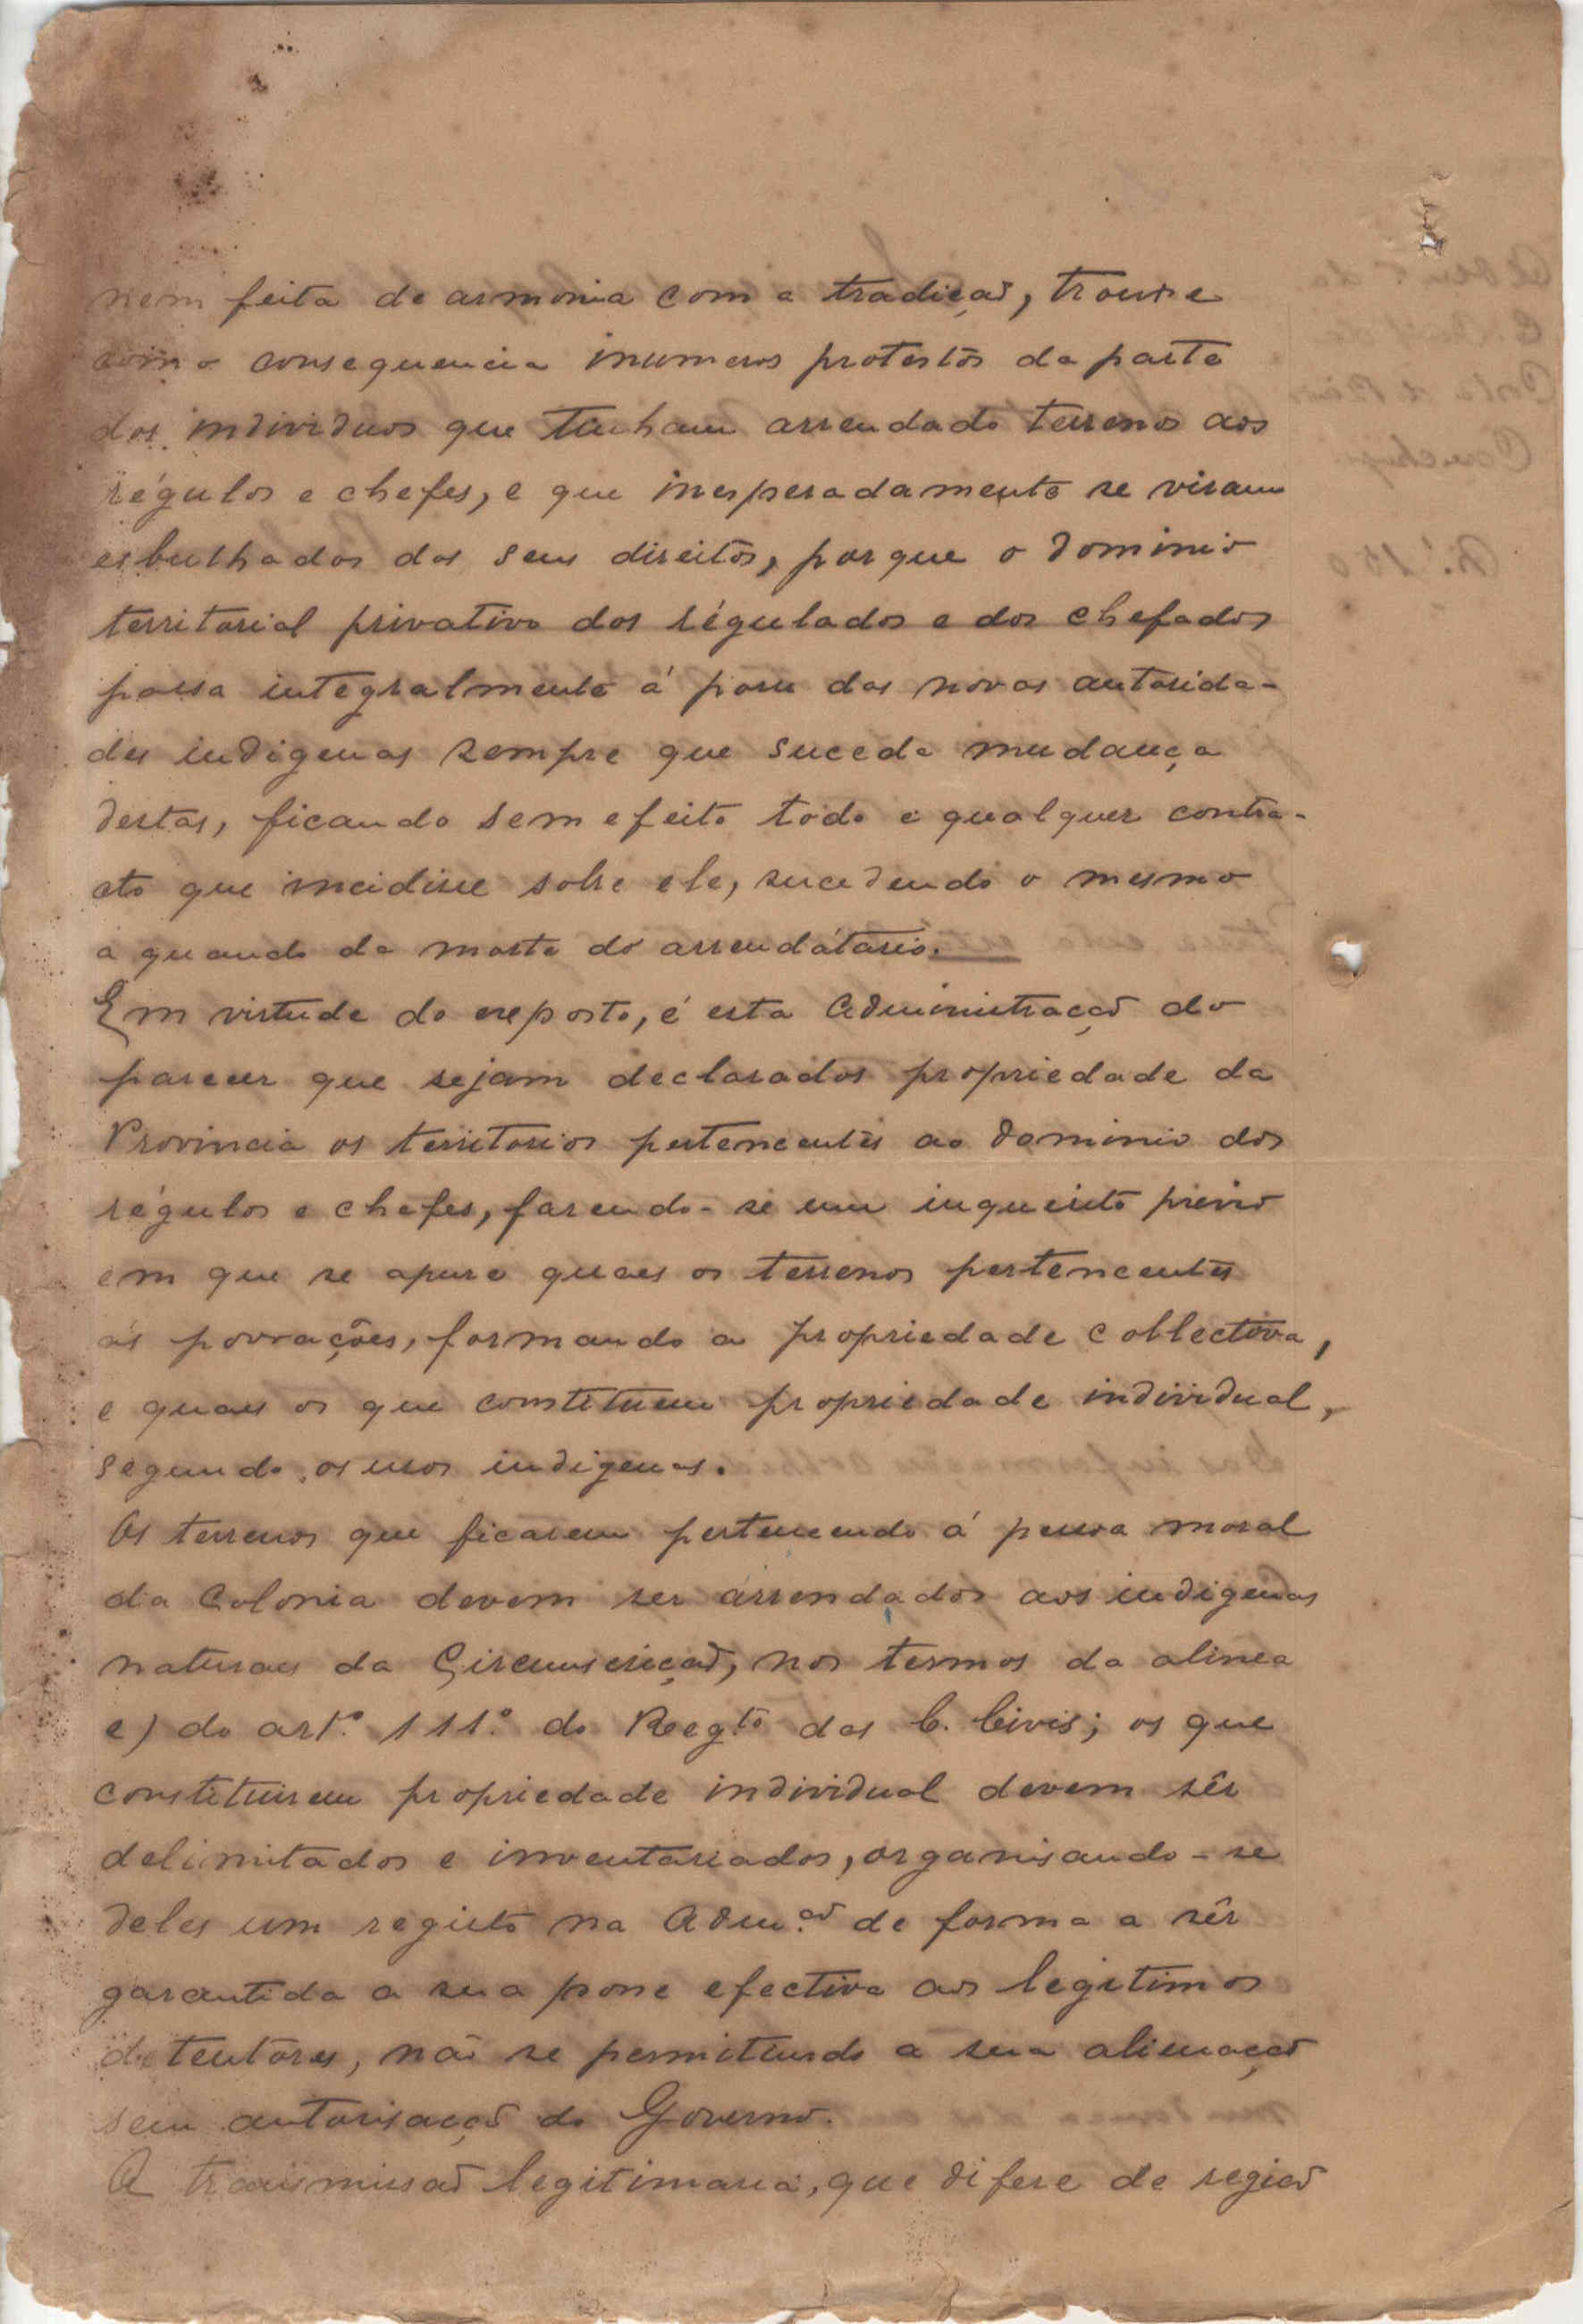 nem feita de armonia com a tradição, trouxe
como consequencia inumeros protestos da parte
dos individuos que tinham arrendado terrenos aos
régulos e chefes, e que inesperadamente se viram
esbulhados dos seus direitos, porque o dominio
territorial privativo dos régulados e dos chefados
passa integralmente á posse das novas autorida-
des indigenas sempre que suceda mudança
destas, ficando sem efeito todo e qualquer contra-
ato que incidisse sobre ele, sucedendo o mesmo
a quando da morte do arrendátario.
Em virtude do exposto, é esta Administração do
parecer que sejam declarados propriedade da
Provincia os territorios pertencentes ao dominio dos
régulos e chefes, fazendo-se um inquerito previo
em que se apure quaes os terrenos pertencentes
ás povoações, formando a propriedade collectiva,
e quaes os que constituem propriedade individual,
segundo os usos indigenas.
Os terrenos que ficarem pertencendo á pessoa moral
da Colonia devem ser arrendados aos indigenas
naturaes da Circunscrição, nos termos da alinea
e) do artº. 111º. do Regto das C. Civis; os que
constituirem propriedade individual devem sêr
delimitados e inventariados, organisando-se
deles um registo na Admão de forma a sêr
garantida a sua posse efectiva aos legitimos
detentores, não se permitindo a sua alienação
sem autorisação do Governo.
A transmissão legitimaria, que difere de região